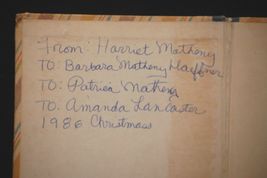 From: Harriet Matheny
TO: Barbara Matheny Haffner
TO: Patricia Matheny
TO: Amanda Lancaster
1986 Christmas